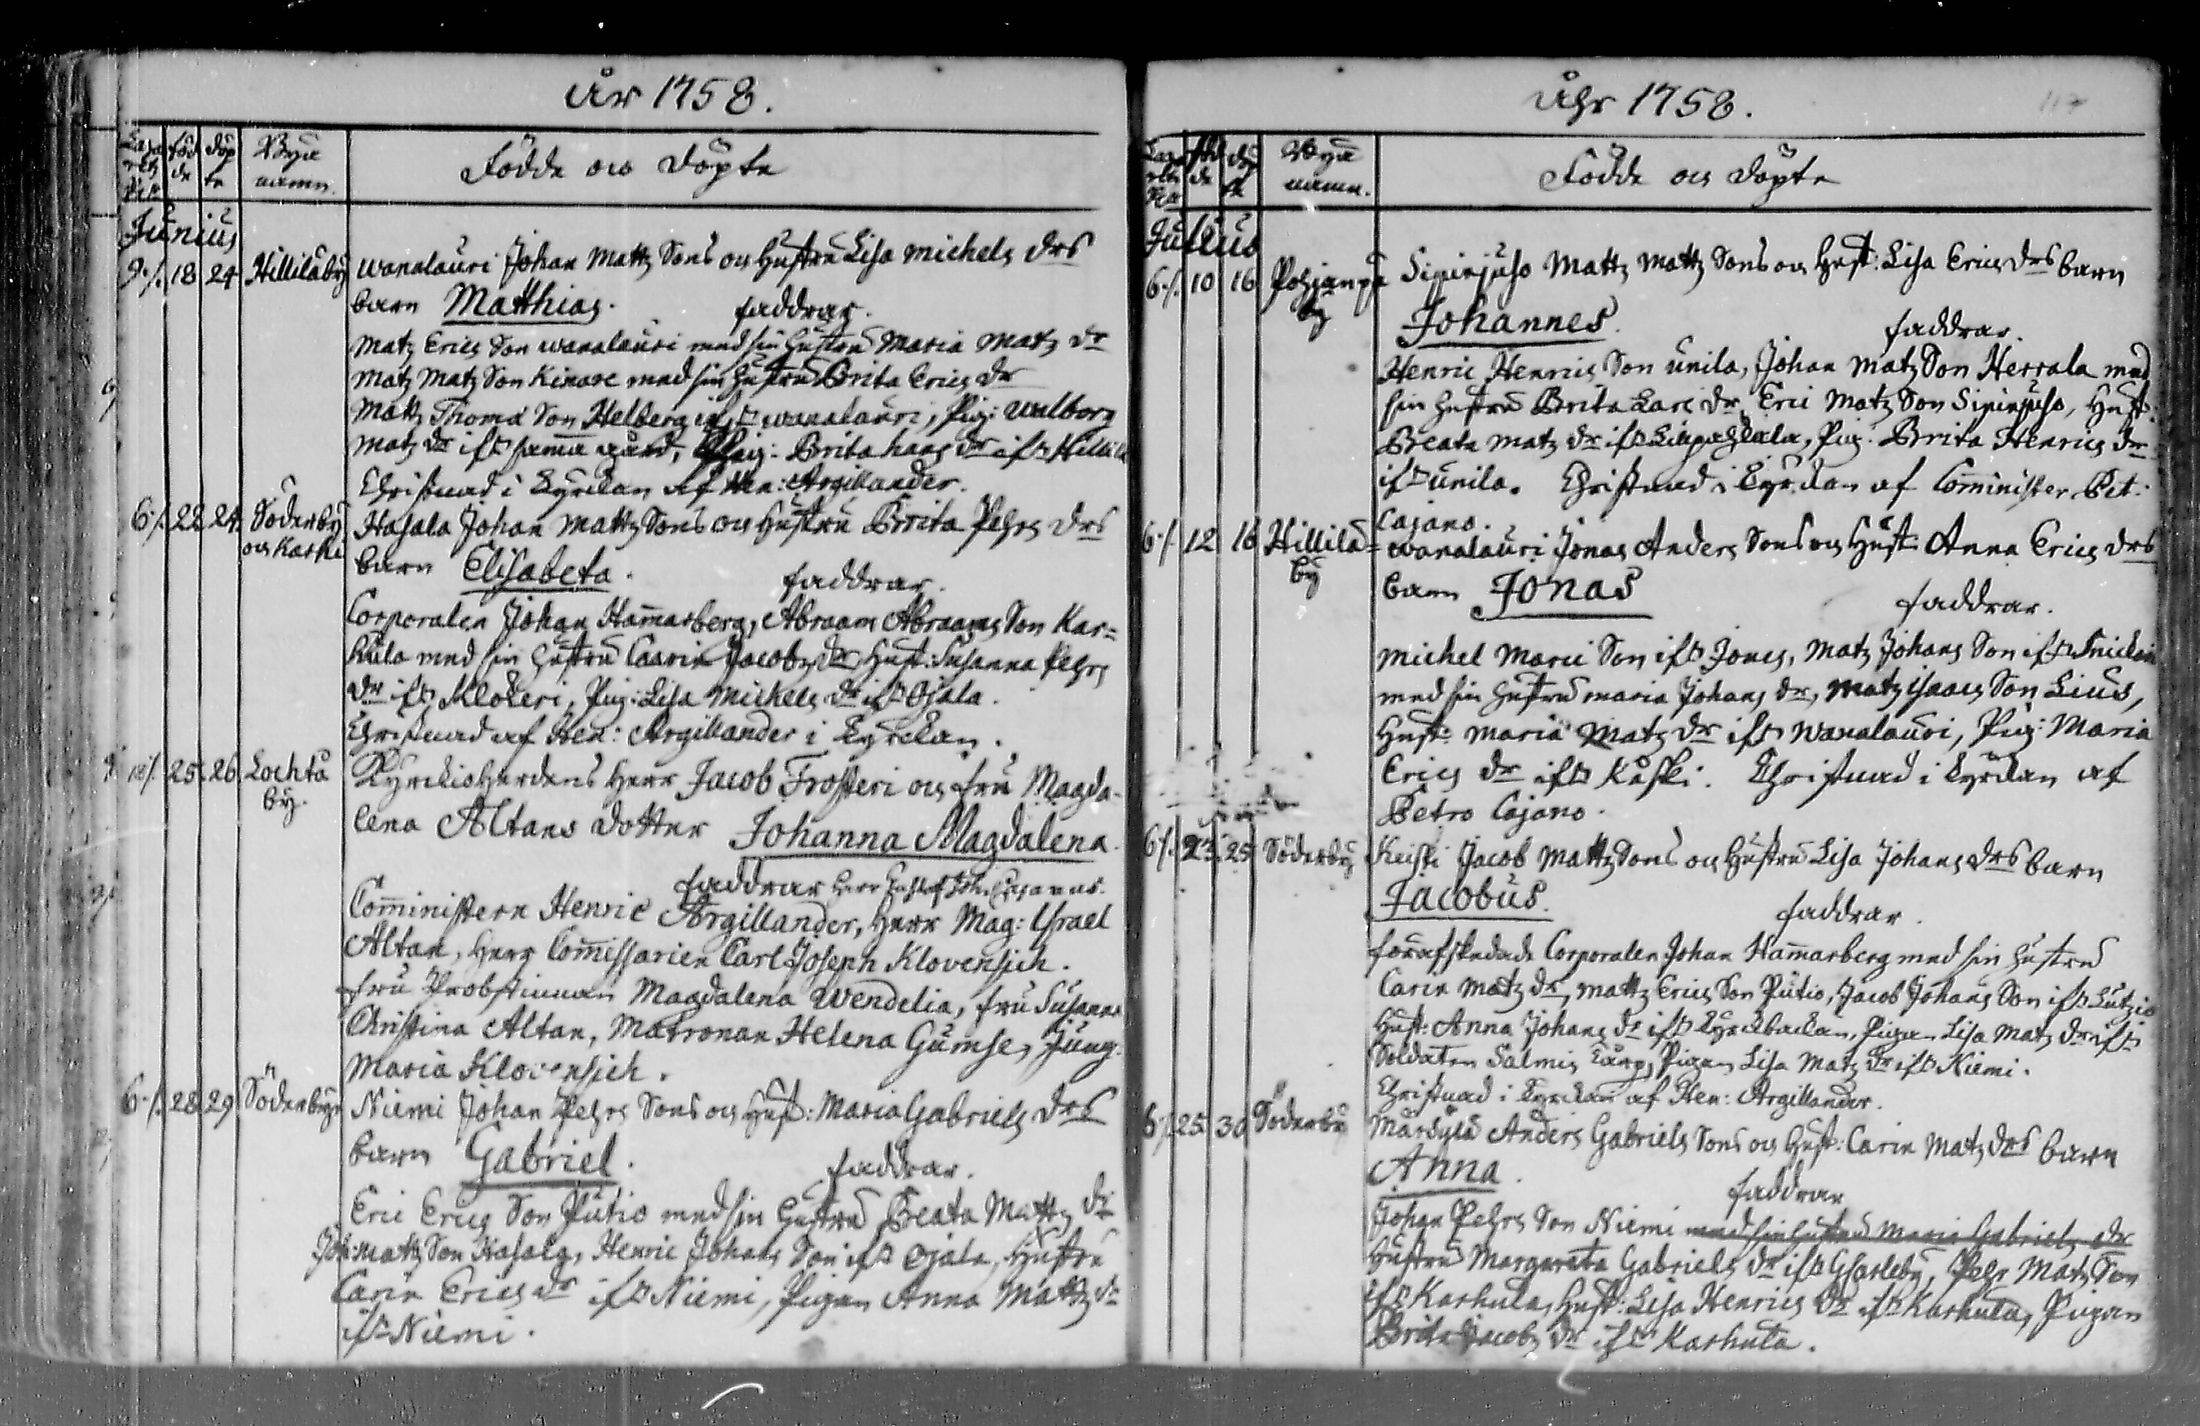 År 1758.
Födde och Döpte
Föd de
döp te
Bya namn.
Junius
9./. 18 24 Hillilä by Wanalauri Johan Mattz Sons och Hustru Lisa Michels drs
barn Matthias. faddrar.
Matz Erics Son Wanalauri med sin Hustru Maria Matz dr
Matz Matz Son Kinare med sin Hustru Brita Erics dr
Mattz Thomæ Son Helberg if:n Wanalauri, Pig: Walborg
Matz dr ifrn samma gård, Pig: Brita Hans dr ifrn Hillilä
Christnad i Kyrckan af Hen: Argillander.
6./. 22 24 Söderby och Karhi Hasala Johan Mattz Sons och Hustru Brita Pehrs drs
barn Elisabeta. faddrar.
Corporalen Johan Hamarberg, Abraam Abraams Son Kar=
hula med sin Hustru Caarin Jacobs dr Hust: Susanna Pehrs
dr ifrn Klockeri, Pig: Lisa Michels dr ifrn Ojala.
Christnad af Hen: Argillander i Kyrckan.
25 26 Lochtå by. Kyrckioherdens Herr Jacob Frosteri och fru Magda-
lena Altans dotter Johanna Magdalena.
faddrar Herr Joh: Cajanus.
Comministern Henric Argillander, Herr Mag: Israel
Altan, Herr Comissarien Carl Joseph Klovensich.
fru Probstinnan Magdalena Wendelia, fru Susanna
Christina Altan, Matronan Helena Gumse, Jung.
Maria Klovensich.
6./. 28 29 Söderby Niemi Johan Pehrs Sons och Hust: Maria Gabriels drs
barn Gabriel. faddrar.
Eric Erics Son Putio med sin Hustru Beata Mattz dr
Joh: Mattz Son Hasala, Henric Johans Son ifrn Ojala, Hustru
Carin Erics dr ifrn Niemi, Pigan Anna Mattz dr
ifrn Niemi.
Åhr 1758.
117
Födde och Döpte
Bya namn.
Julius
6./. 10 16 Pohjanpä by Sipinjuso Mattz Mattz Sons och Hust: Lisa Erics drs barn
Johannes. faddrar.
Henric Henrics Son Unila, Johan Matz Son Herrala med
sin Hustru Brita Lars dr, Eric Matz Son Sipinjuso, Hust.
Beata Matz dr ifrn, Pig: Brita Henrics dr
ifrn Unila. Christnad i Kyrckan af Cominister Pet:
Cajano.
6./. 12 16 Hillilä= by Wanalauri Jonas Anders Sons och Hust: Anna Erics drs
barn Jonas faddrar.
Michel Marci Son ifrn Jones, Matz Johans Son ifrn
med sin Hustru Maria Johans dr, Matz Isaacs Son Lius,
Hust: Maria Matz dr ifrn Wanalauri, Pig: Maria
Erics dr ifrn Kåski. Christnad i Kyrckan af
Petro Cajano.
6./. 23 25 Söderby Keisti Jacob Mattz Sons och Hustru Lisa Johans drs barn
Jacobus. faddrar.
förafskedade Corporalen Johan Hamarberg med sin Hustru
Carin Matz dr, Mattz Erics Son Putio, Jacob Johans Son ifrn
Hust: Anna Johans dr ifrn Kyrckbackan, Pigan Lisa Matz dr ifrn
Soldaten Salmis, Pigan Lisa Matz dr ifrn Niemi.
Christnad i Kyrckan af Hen: Argillander.
6./. 25 30 Söderby Märsylä Anders Gabriels Sons och Hust: Carin Matz drs barn
Anna. faddrar
Johan Pehrs Son Niemi med sin hustru Maria Gabriels dr
Hustru Margareta Gabriels dr ifrn Gharleby, Pehr Matz Son
ifrn Karhula, Hust: Lisa Henrics dr ifrn Karhula, Pigan
Brita Jacobs dr ifrn Karhula.